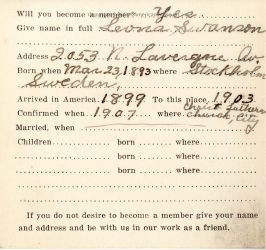 Will you become a member Yes
Give name in full Leona Swanson
Address 2053 N. Lavergne Av.
Born when Mar 23, 1893 where Stockholm
Sweden,
Arrived in America 1899 To this place 1903
Confirmed when 1907 where Christ fathers
church, City
Married, when
Children born where
born where
born where
If you do not desire to become a member give your name
and address and be with us in our work as a friend.